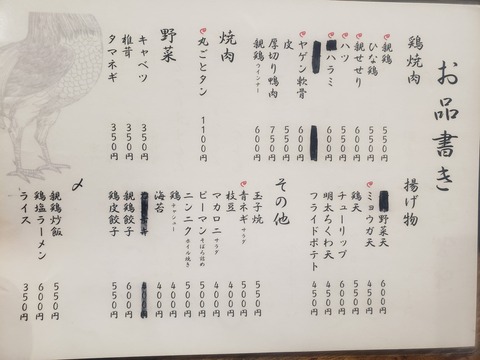 お品書き
鶏焼肉
親鶏 550円
ひな鶏 550円
親せせり 600円
ハツ 550円
ハラミ 600円
ヤゲン軟骨 600円
皮 550円
厚切り鴨肉 750円
親鶏ウインナー 600円
焼肉
丸ごとタン 1100円
野菜
キャベツ 350円
椎茸 350円
タマネギ 350円
揚げ物
野菜天 600円
ミョウガ天 450円
鶏天 550円
チューリップ 600円
明太ちくわ天 400円
フライドポテト 450円
その他
玉子焼 550円
青ネギサラダ 500円
枝豆 400円
マカロニサラダ 400円
ピーマンそぼろ詰め 500円
ニンニクホイル焼き 400円
鶏チャンジャー 400円
海苔 400円
親鶏餃子 600円
鶏皮餃子 550円
〆
親鶏炒飯 550円
鶏塩ラーメン 600円
ライス 350円